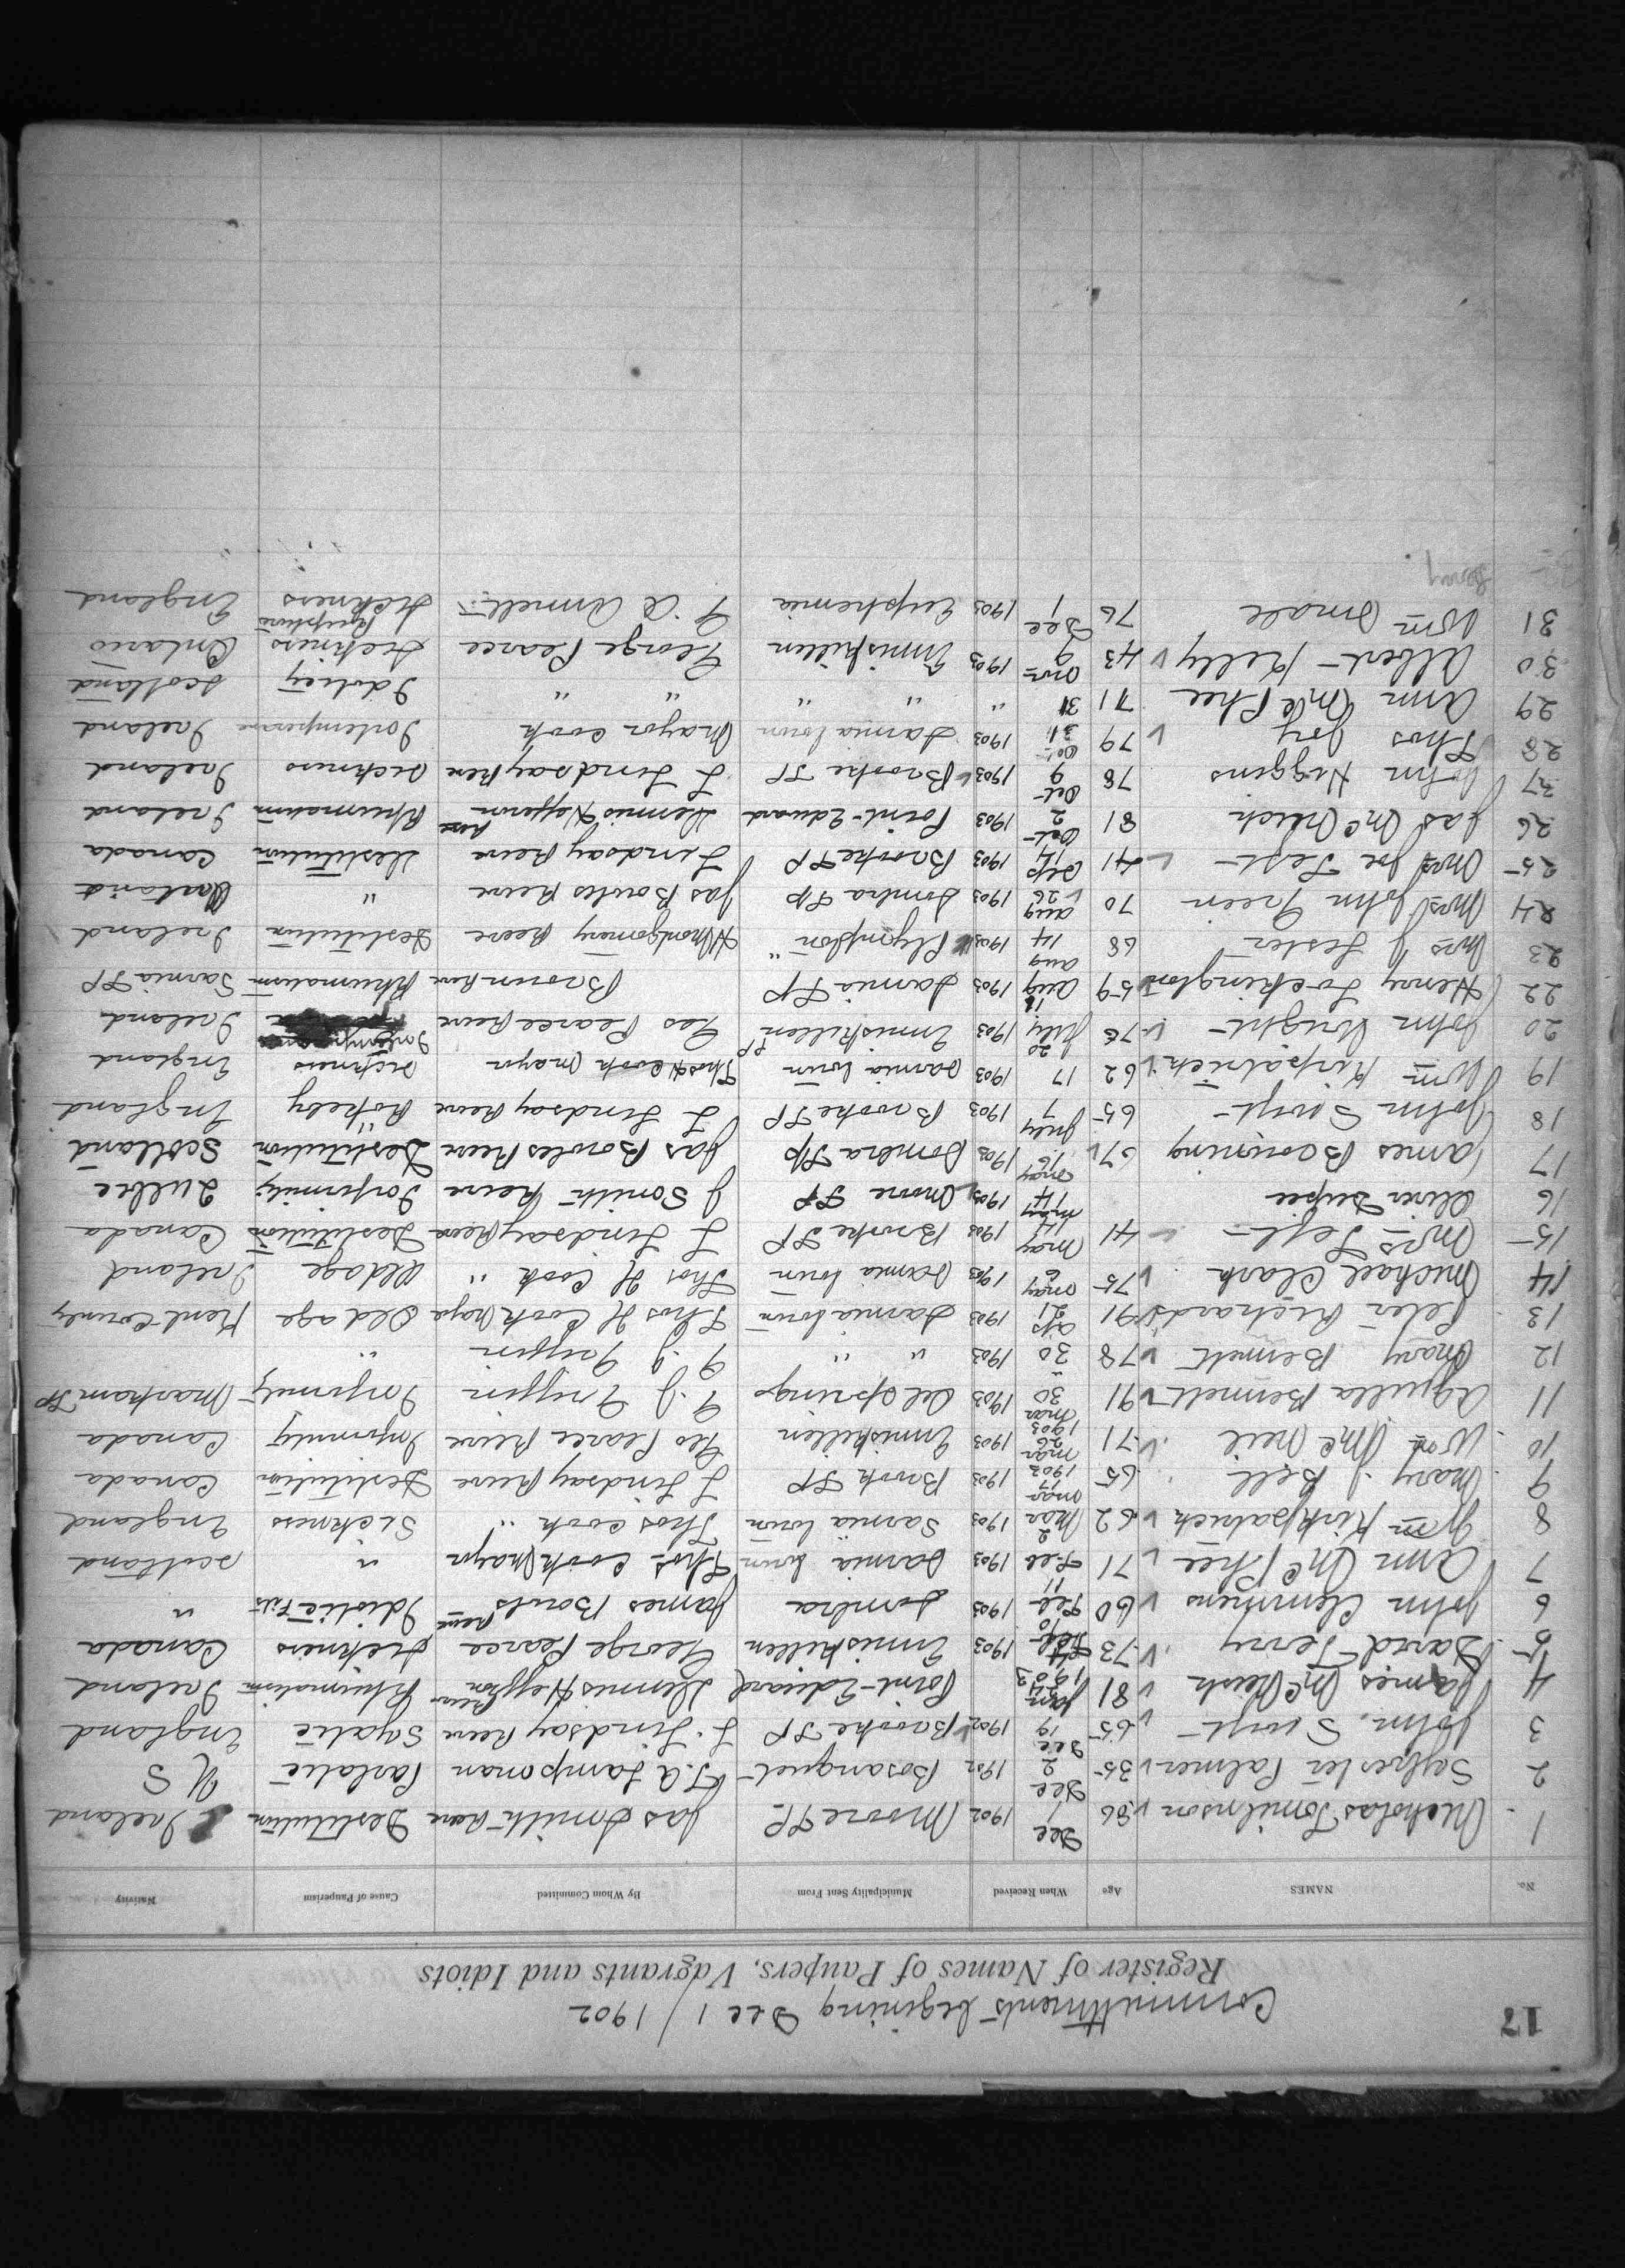 17
Committments begining Dec 1 / 1902
Register of Names of Paupers, Vagrants and Idiots
No. NAMES Age When Received Municipality Sent From By Whom Committed Cause of Pauperism Nativity
1 Nicholas Tomilnson 86 Dec 1 1902 Moore TP Jas Smith Reeve Destitution Ireland
2 Sylvester Palmer 35 Dec 2 1902 Bosanquet J.A. Lampman Parlatic U S
3 John Swift 65 Dec 19 1902 Brooke TP L. Lindsay Reeve Syatic England
4 James McNeish 81 Jan 1903 Point Edward Dennis Heffron Reeve Rhumatism Ireland
5 David Terry 73 Feb 1903 Inniskillen George Pearce Reeve Sickness Canada
6 John Clemmens 60 Feb 10 1903 Sombra James Bowls Idiotic Fits "
7 Ann McPhee 71 Feb 11 1903 Sarnia town Thos Cook Mayor " Scotland
8 Wm Kirkpatrick 62 Mar 2 1903 Sarnia town Thos Cook " Sickness England
9 Mary J Bell 65 Mar 17 1903 Brook TP L Lindsay Reeve Destitution Canada
10 Wm McNeil 71 Mar 26 1903 1903 Inniskillen Geo Pearce Reeve Infirmity Canada
11 Aquilla Bennett 91 Mar 30 1903 Oil Springs G. J. Griffin Infirmity Markham TP
12 Mary Bennett 78 " 30 1903 " " G. J. Griffin "
13 Peter Richards 91 Ap 21 1903 Sarnia town Thos H Cook Mayor Old age Kent County
14 Michael Clark 75 May 6 1903 Sarnia town Thos H Cook " Old age Ireland
15 Mrs Teft 41 May 14 1903 Brooke TP L Lindsay Reeve Destitution Canada
16 Oliver Dupee May 14 1903 Moore TP J Smith Reeve Infirmity Quebec
17 James Browning 67 May 16 1903 Sombra Tp Jas Bowles Reeve Destitution Scotland
18 John Swift 65 July 7 1903 Brooke TP L Lindsay Reeve " England
19 Wm Kirpatrick 62 17 1903 Sarnia town Thos H Cook Mayor Sickness England
20 John Wright 76 July 20 1903 Inniskillen TP Geo Pearce Reeve Intemperance Ireland
22 Henry Lockington 59 Aug 1903 Sarnia TP Brown Reeve Rhumatism Sarnia TP
23 Mrs J Lester 68 Aug 14 1903 Plympton " H Montgomery Reeve Destitution Ireland
24 Mrs John Green 70 Aug 26 1903 Sombra Tp Jas Bowles Reeve "
25 Mrs Joe Teft 41 Sep 14 1903 Brooke TP Lindsay Reeve Destitution Canada
26 Jas McNeish 81 Oct 2 1903 Point Edward Dennis Hefferon Reeve Rhumatism Ireland
27 John Higgins 78 Oct 9 1903 Brooke TP L Lindsay Reeve Sickness Ireland
28 Thos Joy 79 Oct 31 1903 Sarnia town Mayor Cook Intemperance Ireland
29 Ann McPhee 71 31 " " " " " Idiocy Scotland
30 Albert Kelly 43 Nov 9 1903 Inniskillen George Pearce Sickness Ontario
31 Wm Small 76 Dec 1 1903 Euphemia Rupture Sickness England